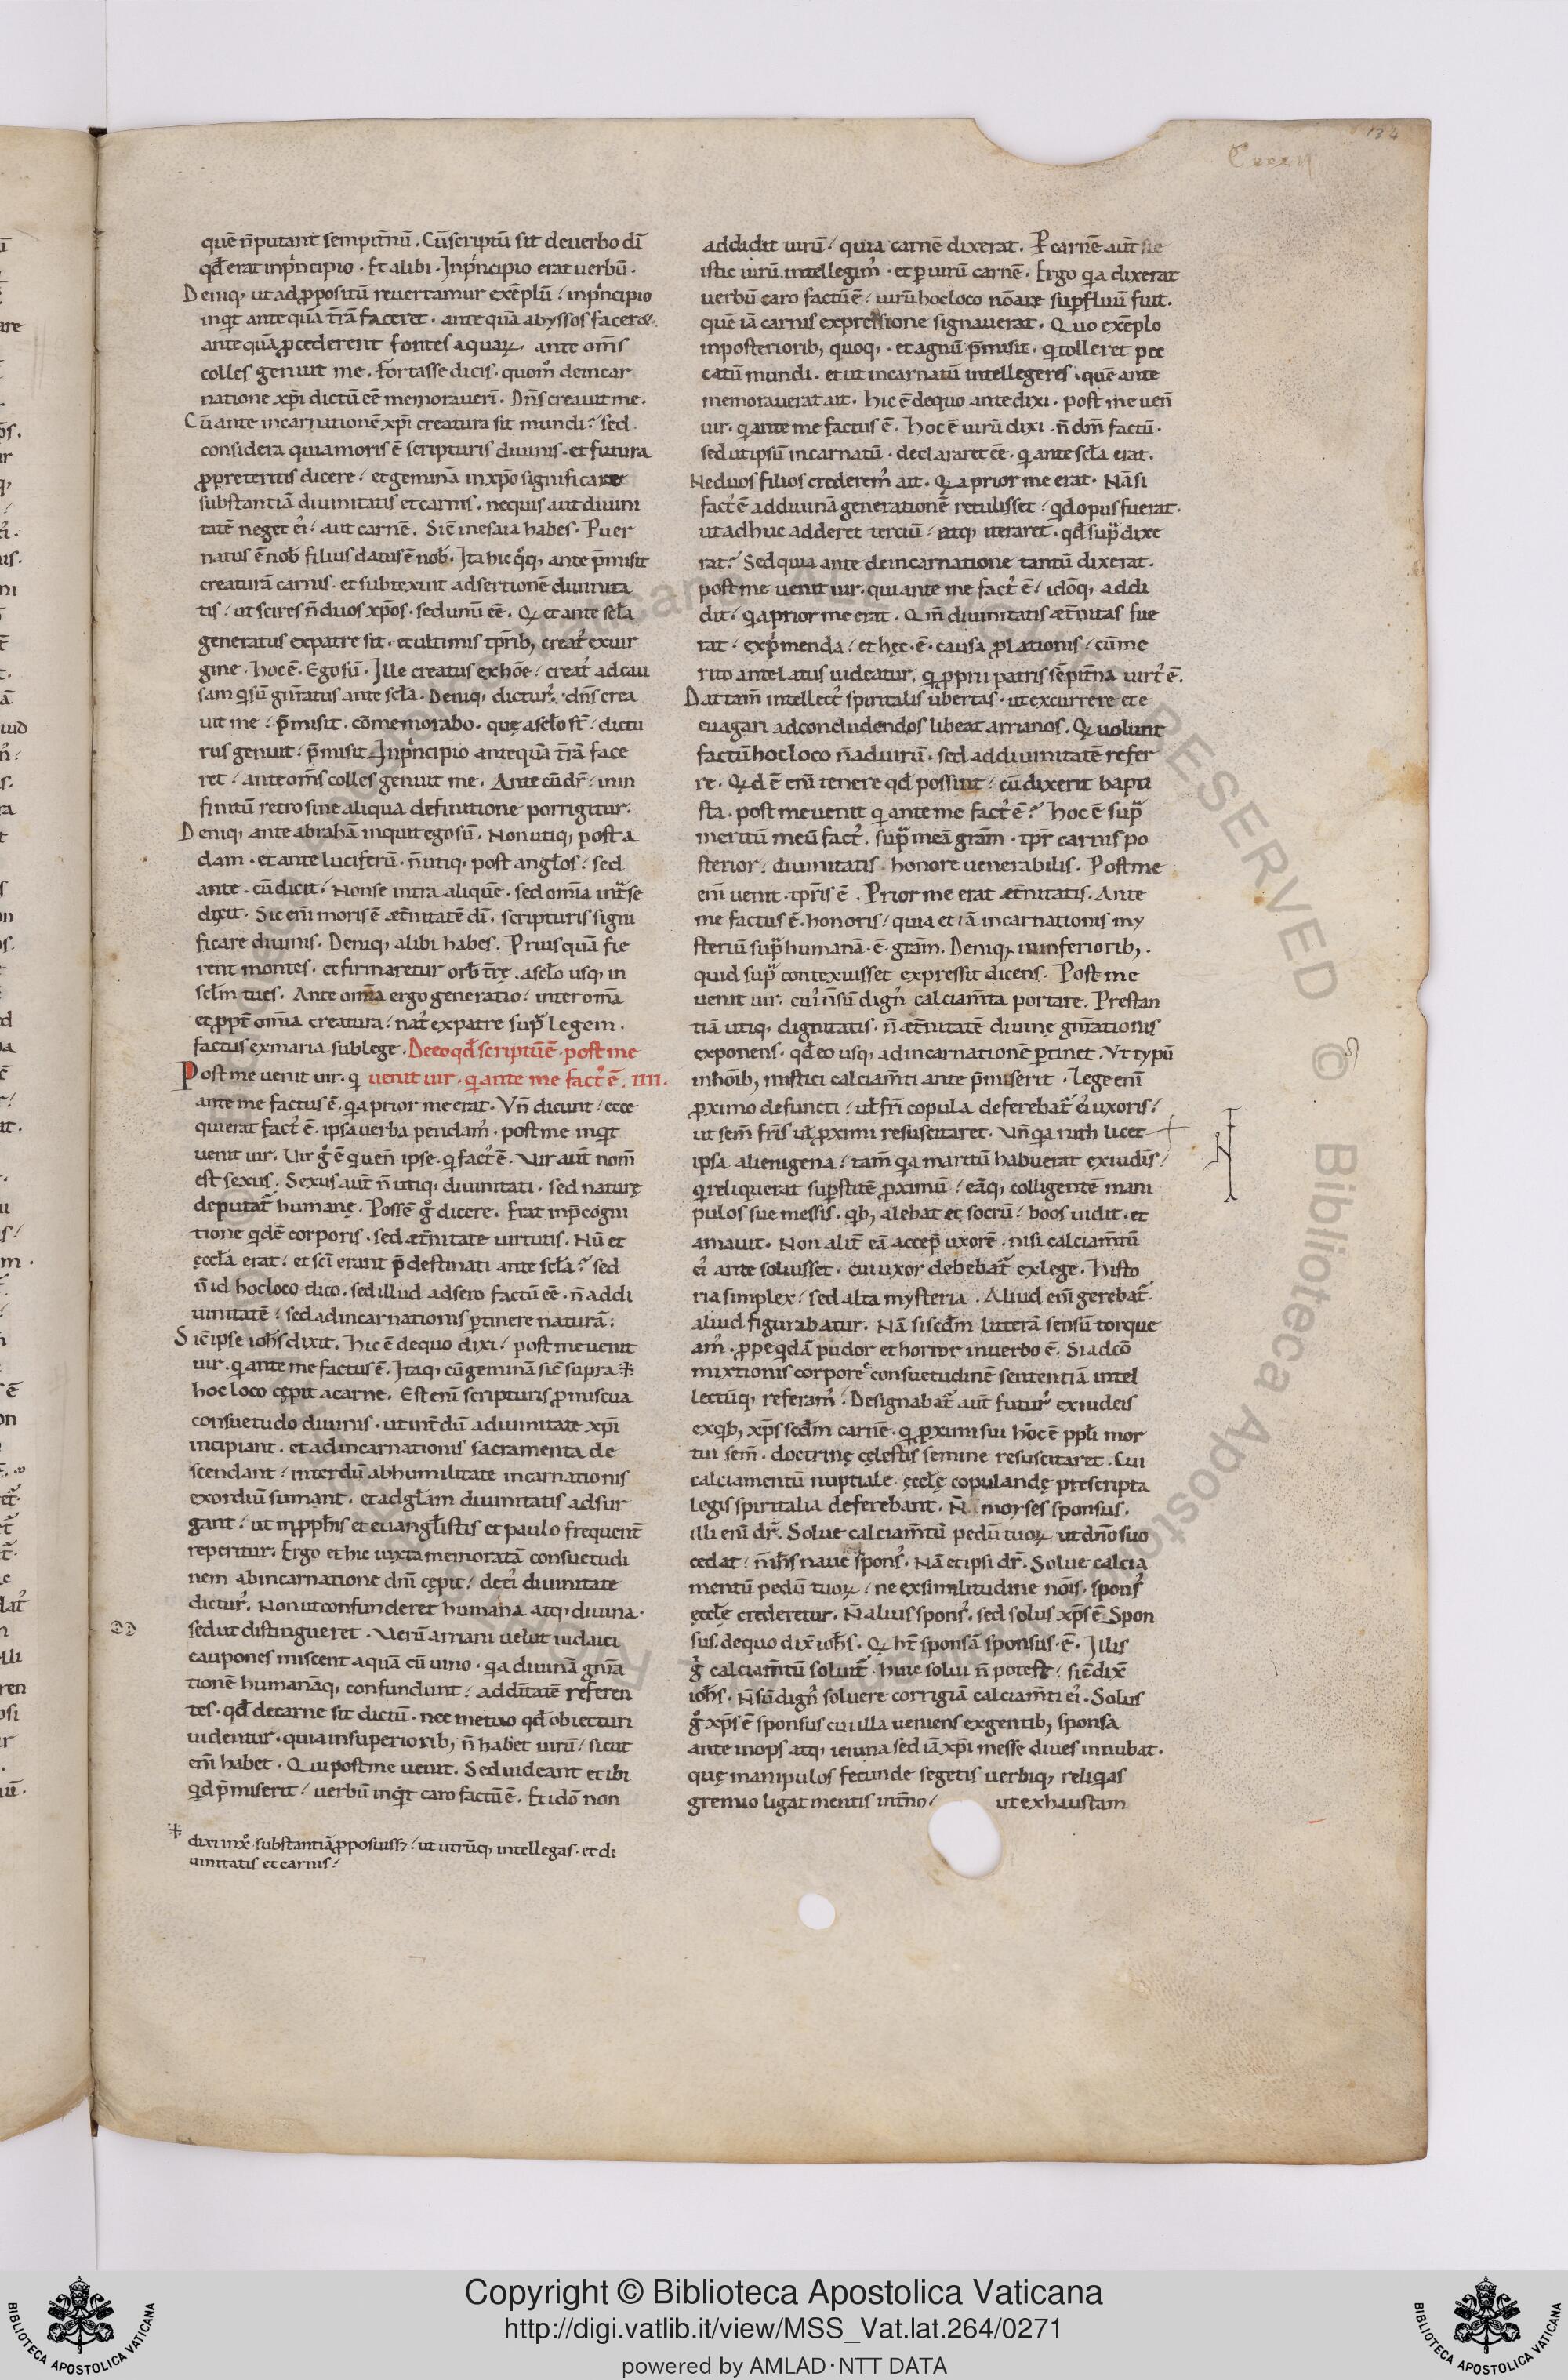 134
Cxxxii
quē n̄ putant sempit̄nū. Cū scriptū sit de uerbo dī
qđ erat in pⁱncipio. Et alibi. In pⁱncipio erat uerbū.
Deniq; ut ad ꝓpositū reuertamur exēplū. in pⁱncipio
inqⁱt ante quā t̄rā faceret. ante quā abyssos facer&.
ante quā ꝓcederent fontes aquaꝝ. ante om̄s
colles genuit me. Fortasse dicis. quom̊ de incar
natione xp̄i dictū eē memorauerī. Dn̄s creauit me.
Cū ante incarnationē xp̄i creatura sit mundi? sed
considera quia moris ē scripturis diuinis. et futura
ꝓ preteritis dicere. et geminā in xp̄o significare
substantiā diuinitatis et carnis. ne quis aut diuini
tatē neget eiꝰ. aut carnē. Sic̄ in esaia habes. Puer
natus ē nob̄ filius datus ē nob̄. Ita hic qͦq; ante p̄misit
creaturā carnis. et subtexuit adsertionē diuinita
tis. ut scires n̄ duos xp̄os. sed unū eē. Qꝫ et ante sc̄la
generatus ex patre sit. et ultimis tp̄rib; creatꝰ ex uir
gine. hoc ē. Ego sū. Ille creatus ex hōe. creatꝰ ad cau
sam qⁱ sū gn̄ratus ante sc̄la. Deniq; dicturꝰ. dn̄s crea
uit me. p̄misit. cōmemorabo. quę a sc̄lo st̄. dictu
rus genuit. p̄misit. In pⁱncipio antequā t̄rā face
ret. ante om̄s colles genuit me. Ante cū dr̄. in in
finitū retro sine aliqua definitione porrigitur.
Deniq; ante abrahā inquit ego sū. Non utiq; post a
dam. et ante luciferū. n̄ utiq; post angl̄os. sed
ante. cū dicit. Non se intra aliquē. sed om̄ia int̄ se
dixit. Sic en̄i moris ē æt̄nitatē dī. scripturis signi
ficare diuinis. Deniq; alibi habes. Priusquā fie
rent montes. et firmaretur orb̄ t̄rę. a sc̄lo usq; in
sc̄lm tu es. Ante om̄ia ergo generatio. inter om̄a
et ꝓpt̄ om̄ia creatura. natꝰ ex patre supͣ legem.
factus ex maria sub lege. De eo qđ scriptū ē. post me
Post me uenit uir. qⁱ uenit uir. qⁱ ante me factꝰ ē. IIII.
ante me factus ē. qⁱa prior me erat. Vn̄ dicunt. ecce
qui erat factꝰ ē. ipsa uerba pendamꝰ. post me inqⁱt
uenit uir. Uir gͦ ē qⁱ uen̄ ipse. qⁱ factꝰ ē. Vir aut̄ nom̄
est sexus. Sexus aut̄ n̄ utiq; diuinitati. sed naturę
deputat̄ humanę. Possē gͦ dicere. Erat in p̄cogni
tione qⁱdē corporis. sed æt̄nitate uirtutis. Nū et
ęccl̄a erat. et sc̄i erant p̄destinati ante sc̄la? sed
n̄ id hoc loco dico. sed illud adsero factū eē. n̄ ad di
uinitatē. sed ad incarnationis ꝑtinere naturā.
Sic̄ ipse ioh̄s dixit. hic ē de quo dixi. post me uenit
uir. qⁱ ante me factus ē. Itaq; cū geminā sic̄ supra
hoc loco cępit a carne. Est en̄i scripturis ꝓmiscua
consuetudo diuinis. ut int̄dū a diuinitate xp̄i
incipiant. et ad incarnationis sacramenta de
scendant. interdū ab humilitate incarnationis
exordiū sumant. et ad gl̄am diuinitatis adsur
gant. ut in ꝓph̄is et euangl̄istis et paulo frequent̄
reperitur. Ergo et hic iuxta memoratā consuetudi
nem ab incarnatione dn̄i cępit. de eiꝰ diuinitate
dicturꝰ. Non ut confunderet humana atq; diuina.
sed ut distingueret. Verū arriani uelut iudaici
caupones miscent aquā cū uino. qⁱa diuinā gn̄ra
tionē humanāq; confundunt. ad dītatē referen
tes. qđ de carne sit dictū. nec metuo qđ obiecturi
uidentur. quia in superiorib; n̄ habet uirū. sicut
en̄i habet. Qui post me uenit. Sed uideant et ibi
qⁱd p̄miserit. uerbū inqⁱt caro factū ē. Et idō non
dixi in xͦ substantiā ꝓposuissꝫ. ut utrūq; intellegas. et di
uinitatis et carnis.
addidit uirū. quia carnē dixerat. P carnē aut̄ sic
istic uirū intellegimꝰ. et ꝑ uirū carnē. Ergo qⁱa dixerat
uerbū caro factū ē. uirū hoc loco nōare suꝑfluū fuit.
quē iā carnis expressione signauerat. Quo exēplo
in posteriorib; quoq;. et agnū p̄misit. qⁱ tolleret pec
catū mundi. et ut incarnatū intellegeres. quē ante
memorauerat ait. hic ē de quo ante dixi. post me uen̄
uir. qⁱ ante me factus ē. Hoc ē uirū dixi. n̄ dm̄ factū.
sed ut ipsū incarnatū. declararet eē. qⁱ ante sc̄la erat.
Ne duos filios crederemꝰ ait. Qⁱa prior me erat. Nā si
factꝰ ē ad diuinā generationē retulisset. qⁱd opus fuerat.
ut adhuc adderet terciū. atq; iteraret. qđ supͣ dixe
rat? Sed quia ante de incarnatione tantū dixerat.
post me uenit uir. qui ante me factꝰ ē. idōq; addi
dit. qⁱa prior me erat. Qm̄ diuinitatis æt̄nitas fue
rat. expⁱmenda. et hęc ē causa ꝓlationis. cū me
rito antelatus uideatur. qⁱ ꝓprii patris sēpit̄na uirtꝰ ē.
Dat tam̄ intellectꝰ spiritalis ubertas. ut excurrere et e
euagari ad concludendos libeat arrianos. Qⁱ uolunt
factū hoc loco n̄ ad uirū. sed ad diuinitatē refer
re. Qⁱd ē en̄i tenere qđ possint. cū dixerit bapti
sta. post me uenit qⁱ ante me factꝰ ē? Hoc ē supͣ
meritū meū factꝰ. supͣ meā gr̄am. tp̄r carnis po
sterior. diuinitatis. honore uenerabilis. Post me
en̄i uenit. tp̄ris ē. Prior me erat æt̄nitatis. Ante
me factus ē. honoris. quia et iā incarnationis my
steriū supͣ humanā. ē. gr̄am. Deniq; in inferiorib;.
quid supͣ contexuisset expressit dicens. Post me
uenit uir. cuiꝰ n̄ sū dignꝰ calciam̄ta portare. Prestan
tiā utiq; dignitatis. n̄ æt̄nitatē diuinę gn̄rationis
exponens. qđ eo usq; ad incarnationē ꝑtinet. Vt typū
in hōib; mistici calciam̄ti ante p̄miserit. Lege en̄i
ꝓximo defuncti. ul̄ fr̄i copula deferebat̄ eiꝰ uxoris.
ut sem̄ fr̄is ul̄ ꝓximi resuscitaret. Vn̄ qⁱa ruth licet
ipsa alienigena. tam̄ qⁱa maritū habuerat ex iudīs.
qⁱ reliquerat suꝑstitē ꝓximū. eāq; colligentē mani
pulos sue messis. qⁱb; alebat et socrū. boos uidit. et
amauit. Non alit̄ eā accep̄ uxorē. nisi calciam̄tū
eiꝰ ante soluisset. cui uxor debebat̄ ex lege. Histo
ria simplex. sed alta mysteria. Aliud en̄i gerebat̄.
aliud figurabatur. Nā si scd̄m litterā sensū torque
amꝰ. ꝓpe qⁱdā pudor et horror in uerbo ē. Si ad cō
mixtionis corporeę consuetudinē sententiā intel
lectūq; referamꝰ. Designabat̄ aut̄ futurꝰ ex iudeis
ex qⁱb; xp̄s scd̄m carnē. qⁱ ꝓximi sui hoc ē ppl̄i mor
tui sem̄. doctrinę cęlestis semine resuscitaret. Cui
calciamentū nuptiale. ęccl̄ę copulandę prescripta
legis spiritalia deferebant. N̄ moyses sponsus.
illi en̄i dr̄. Solue calciam̄tū pedū tuoꝝ ut dn̄o suo
cedat. n̄ ih̄s naue sponsꝰ. Nā et ipsi dr̄. Solue calcia
mentū pedū tuoꝝ. ne ex similitudine nōis. sponsꝰ
ęccl̄ę crederetur. N̄ alius sponsꝰ. sed solus xp̄s ē Spon
sus. de quo dix̄ ioh̄s. Qⁱ ht̄ sponsā sponsus ē. Illis
gͦ calciam̄tū soluit̄. huic solui n̄ potest. sic̄ dix̄
ioh̄s. N̄ sū dignꝰ soluere corrigiā calciam̄ti eiꝰ. Solus
gͦ xp̄s ē sponsus cui illa ueniens ex gentib; sponsa
ante inops atq; ieiuna sed iā xp̄i messe diues innubat.
quę manipulos fecunde segetis uerbiq; reliqⁱas
gremio ligat mentis int̄no. ut exhaustam
RESERVED © Biblioteca Apostolica Vaticana
BIBLIOTECA APOSTOLICA VATICANA
Copyright © Biblioteca Apostolica Vaticana
http://digi.vatlib.it/view/MSS_Vat.lat.264/0271
powered by AMLAD·NTT DATA
BIBLIOTECA APOSTOLICA VATICANA